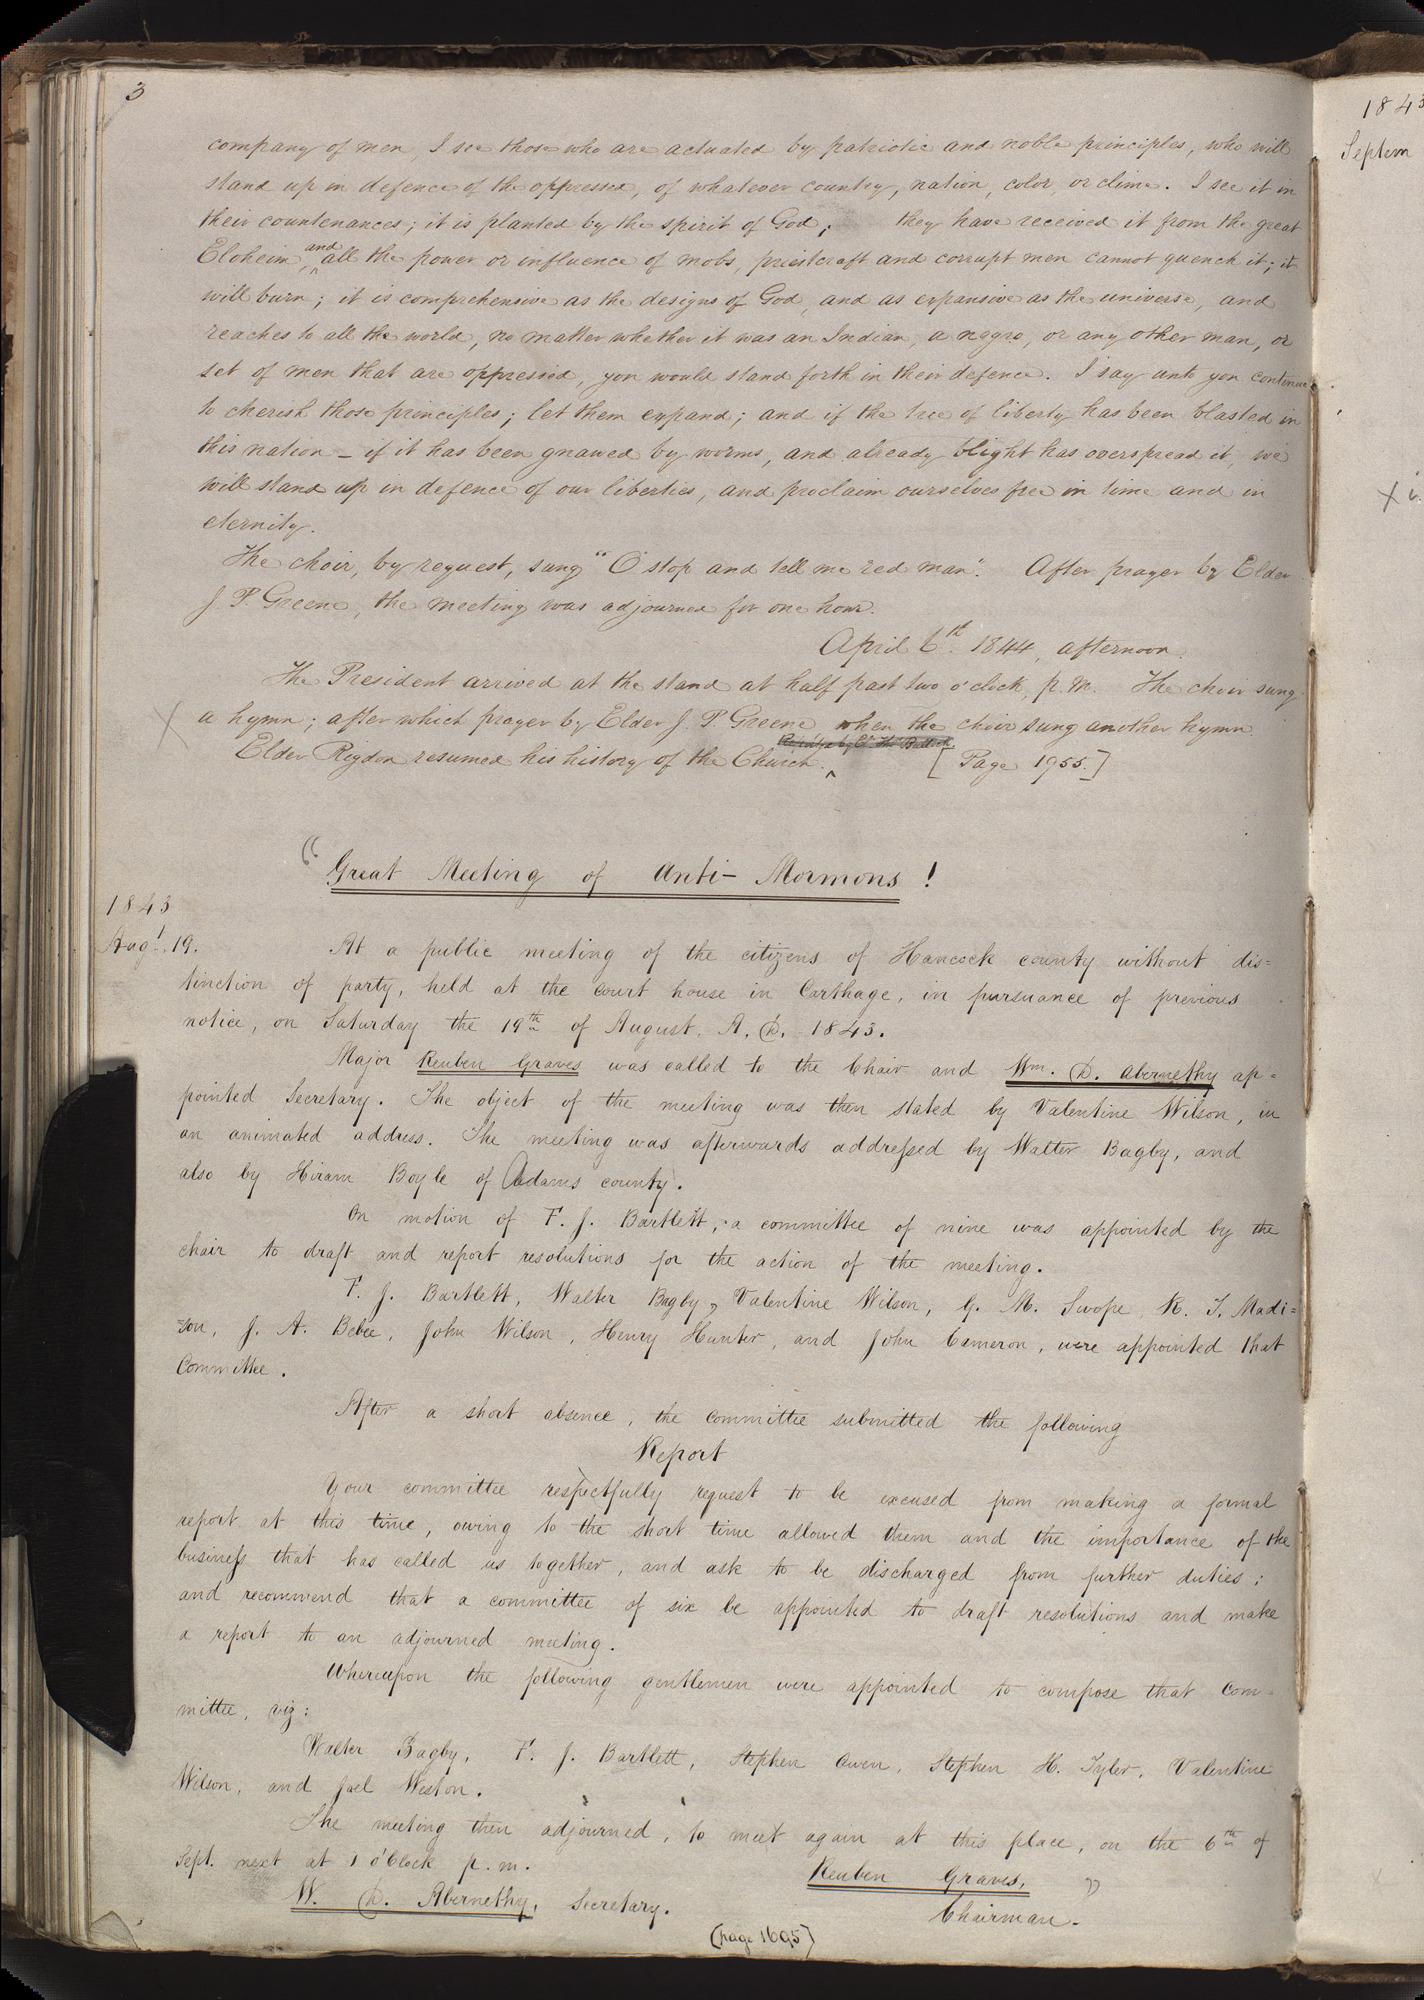 3
company of men, I see those who are actuated by patriotic and noble principles, who will
stand up in defence of the oppressed, of whatever country, nation, color, or clime. I see it in
their countenances; it is planted by the spirit of God; they have received it from the great
Eloheim, and all the power or influence of mobs, priestcraft and corrupt men cannot quench it; it
will burn; it is comprehensive as the designs of God, and as expansive as the universe, and
reaches to all the world, no matter whether it was an Indian, a negro, or any other man, or
set of men that are oppressed, you would stand forth in their defence. I say unto you continue
to cherish those principles; let them expand; and if the tree of liberty has been blasted in
this nation – if it has been gnawed by worms, and already blight has overspread it, we
will stand up in defence of our liberties, and proclaim ourselves free in time and in
eternity.
The choir, by request, sung "O stop and tell me red man". After prayer by Elder
J. P. Greene, the meeting was adjourned for one hour.
April 6th. 1844, afternoon.
The President arrived at the stand at half past two o'clock, p.m. The choir sung
X a hymn; after which prayer by Elder J. P. Greene when the choir sung another hymn.
Elder Rigdon resumed his history of the Church. [Page 1955.]
"Great Meeting of Anti-Mormons!
1843
Augt. 19. At a public meeting of the citizens of Hancock county without dis=
tinction of party, held at the court house in Carthage, in pursuance of previous
notice, on Saturday the 19th of August, A. D. 1843.
Major Reuben Graves was called to the Chair and Wm. D. Abernethy ap=
pointed Secretary. The object of the meeting was then stated by Valentine Wilson, in
an animated address. The meeting was afterwards addressed by Walter Bagby, and
also by Hiram Boyle of Adams county.
On motion of F. J. Bartlett, a committee of nine was appointed by the
chair to draft and report resolutions for the action of the meeting.
F. J. Bartlett, Walter Bagby, Valentine Wilson, G. M. Swope, R. T. Madi=
son, J. A. Bebee, John Wilson, Henry Hunter, and John Cameron, were appointed that
Committee.
After a short absence, the committee submitted the following
Report
Your committee respectfully request to be excused from making a formal
report at this time, owing to the short time allowed them and the importance of the
business that has called us together, and ask to be discharged from further duties;
and recommend that a committee of six be appointed to draft resolutions and make
a report to an adjourned meeting.
Whereupon the following gentlemen were appointed to compose that Com=
mittee, viz:
Walter Bagby, F. J. Bartlett, Stephen Owen, Stephen H. Tyler, Valentine
Wilson, and Joel Weston.
The meeting then adjourned, to meet again at this place, on the 6th of
Sept. next at 1 o'Clock p.m.
Reuben Graves, "
W. D. Abernethy, Secretary. Chairman.
(page 1695)
1843
Septem
X